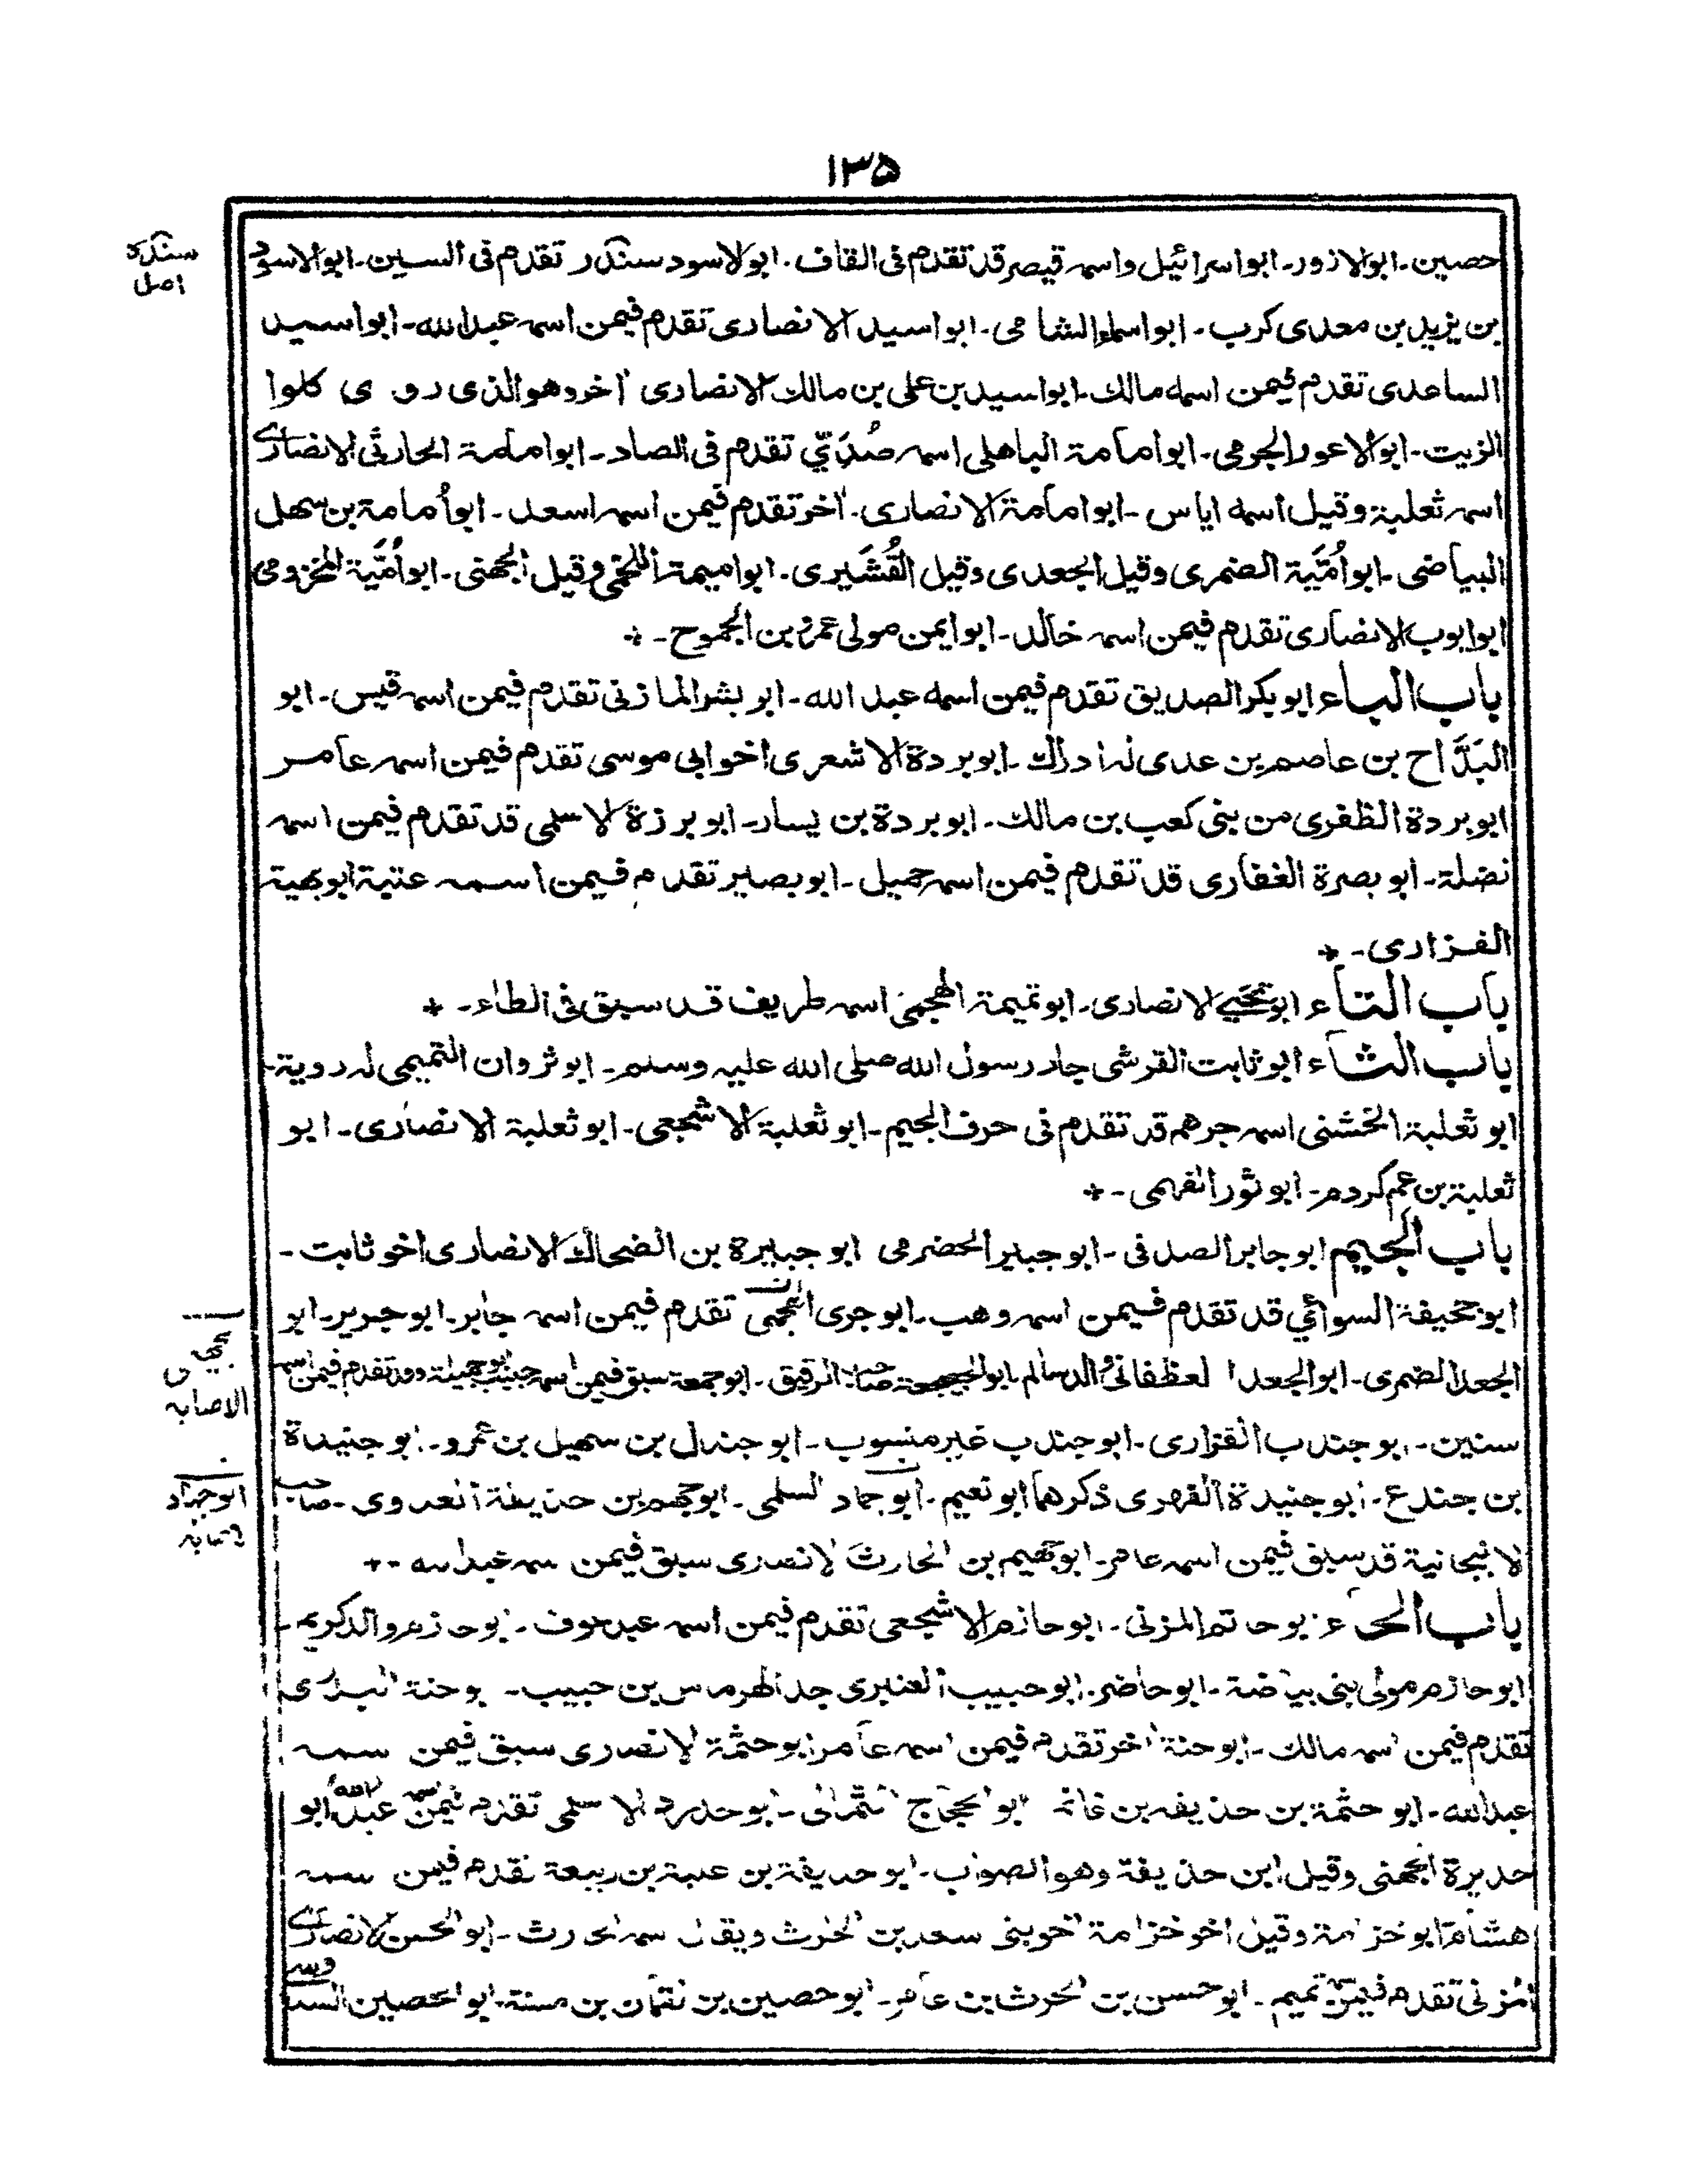 ۱۳۵
حصين۔ ابوالازور۔ ابواسرائيل واسمہ قيصر قد تقدم فى القاف۔ ابوالاسود سندر تقدم فى السين۔ ابوالاسود
سندر
اصل
بن يزيد بن معدى كرب۔ ابواسماء الشامى۔ ابواسيد الانصارى تقدم فيمن اسمہ عبدالله۔ ابواسيد
الساعدى تقدم فيمن اسمه مالك۔ ابواسيد بن على بن مالك الانصارى اخر وهوالذى روى كلوا
الزيت۔ ابوالاعور الجرمى۔ ابوامامة الباهلى اسمہ صُدَيّ تقدم فى الصاد۔ ابوامامة الحارثى الانصارى
اسمہ ثعلبة وقيل اسمه اياس۔ ابوامامة الانصارى۔ اخر تقدم فيمن اسمہ اسعد۔ ابوأمامة بن سهل
البياضى۔ ابوأُمَيَّة الضمرى وقيل الجعدى وقيل القُشَيرى۔ ابواميمة اللخمى وقيل الجهنى۔ ابوأُمَيّة المخزومى
ابوايوب الانصارى تقدم فيمن اسمہ خالد۔ ابوايمن مولى عمرو بن الجموح۔ +
باب الباء ابوبكر الصديق تقدم فيمن اسمه عبد الله۔ ابوبشر المازنى تقدم فيمن اسمہ قيس۔ ابو
البَدَّاح بن عاصم بن عدى لہ ادراك۔ ابوبردة الاشعرى اخوابى موسى تقدم فيمن اسمہ عامر
ابوبردة الظفرى من بنى كعب بن مالك۔ ابوبردة بن يسار۔ ابوبرزة الاسلمى قد تقدم فيمن اسمہ
نضلة۔ ابوبصرة الغفارى قد تقدم فيمن اسمہ حميل۔ ابوبصير تقدم فيمن اسمہ عتبة ابوبهية
الفزارى۔ +
باب التاء ابوتحيى الانصارى۔ ابوتميمة الهجيمى اسمہ طريف قد سبق فى الطاء۔ +
باب الثاء ابوثابت القرشى جار رسول الله صلى الله عليہ وسلم۔ ابوثروان التميمى لہ روية۔
ابوثعلبة الخشنى اسمہ جرهم قد تقدم فى حرف الجيم۔ ابوثعلبة الاشجعى۔ ابوثعلبة الانصارى۔ ابو
ثعلبة بن عم كردم۔ ابوثور الفهمى۔ +
باب الجيم ابوجابر الصدفى۔ ابوجبير الحضرمى ابوجبيرة بن الضحاك الانصارى اخوثابت۔
ابوجحيفة السوائي قد تقدم فيمن اسمہ وهب۔ ابوجرى الهجيمى تقدم فيمن اسمہ جابر۔ ابوجرير۔ ابو
الاصابہ
الجعد الضمرى۔ ابوالجعد الغطفانى والد سالم۔ صاحب الرقيق۔ ابوجمعة سبق فيمن اسمہ حبيب ابوجميلة وقد تقدم فيمن اسمہ
سنين۔ ابوجندب الفزارى۔ ابوجندب غير منسوب۔ ابوجندل بن سهيل بن عمرو۔ ابوجنيدة
بن جندع۔ ابوجنيدة الفهرى ذكرهما ابونعيم۔ ابوجماد السلمى۔ ابوجهم بن حذيفة العدوى۔ صاحب
ابوجهاد
الانبجانية قد سبق فيمن اسمہ عامر۔ ابوجهيم بن الحارث الانصارى سبق فيمن اسمہ عبدالله +
باب الحاء ابوحاتم المزنى۔ ابوحازم الاشجعى تقدم فيمن اسمہ عبد عوف۔ ابوحازم والد كريم۔
ابوحازم مولى بنى بياضة۔ ابوحاضر۔ ابوحبيب العنبرى جد الهرماس بن حبيب۔ ابوحنة البدرى
تقدم فيمن اسمہ مالك۔ ابوحنة اخر تقدم فيمن اسمہ عامر ابوحثمة الانصارى سبق فيمن اسمہ
عبدالله۔ ابوحثمة بن حذيفہ بن غانم ابوالحجاج الثمالى۔ ابوحدرد الاسلمى تقدم فيمن اسمہ عبدالله ابو
حديرة الجهنى وقيل ابن حذيفة وهوالصواب۔ ابوحذيفة بن عتبة بن ربيعة تقدم فيمن اسمہ
هشام ابوخزامة وقيل اخوخزامة اخوبنى سعد بن الحرث ويقال اسمہ الحارث۔ ابوالحسن الانصارى
المزنى تقدم فيمن اسمہ تميم۔ ابوحسن بن الحرث بن عامر۔ ابوحصين بن نقمان بن سنة۔ ابوالحصين